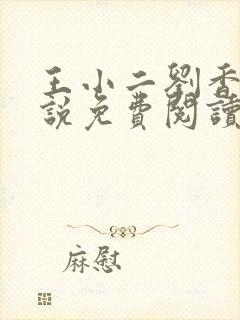 王小二劉香
說免費閱讀
麻慰